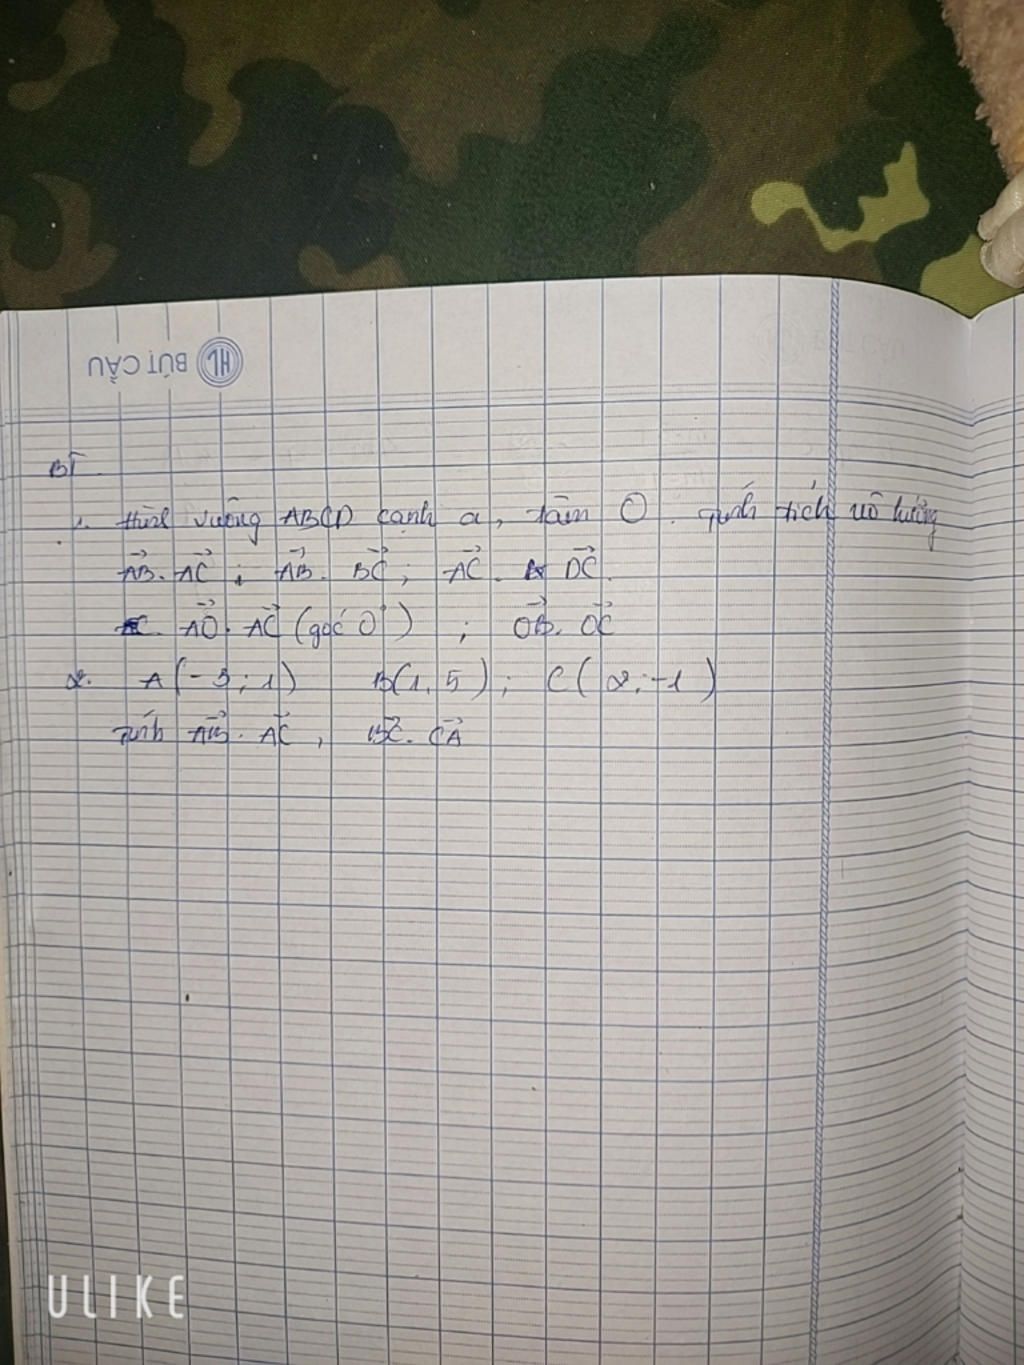 BÚT CẦU HL
BT
1. Hình vuông ABCD cạnh a, tâm O. Tính tích vô hướng
AB. AC ; AB. BC ; AC. DC.
AO. AC (góc 0°) ; OB. OC
2. A(-3; 1) B(1, 5) ; C(2; -1)
Tính AB. AC, BC. CA
ULIKE